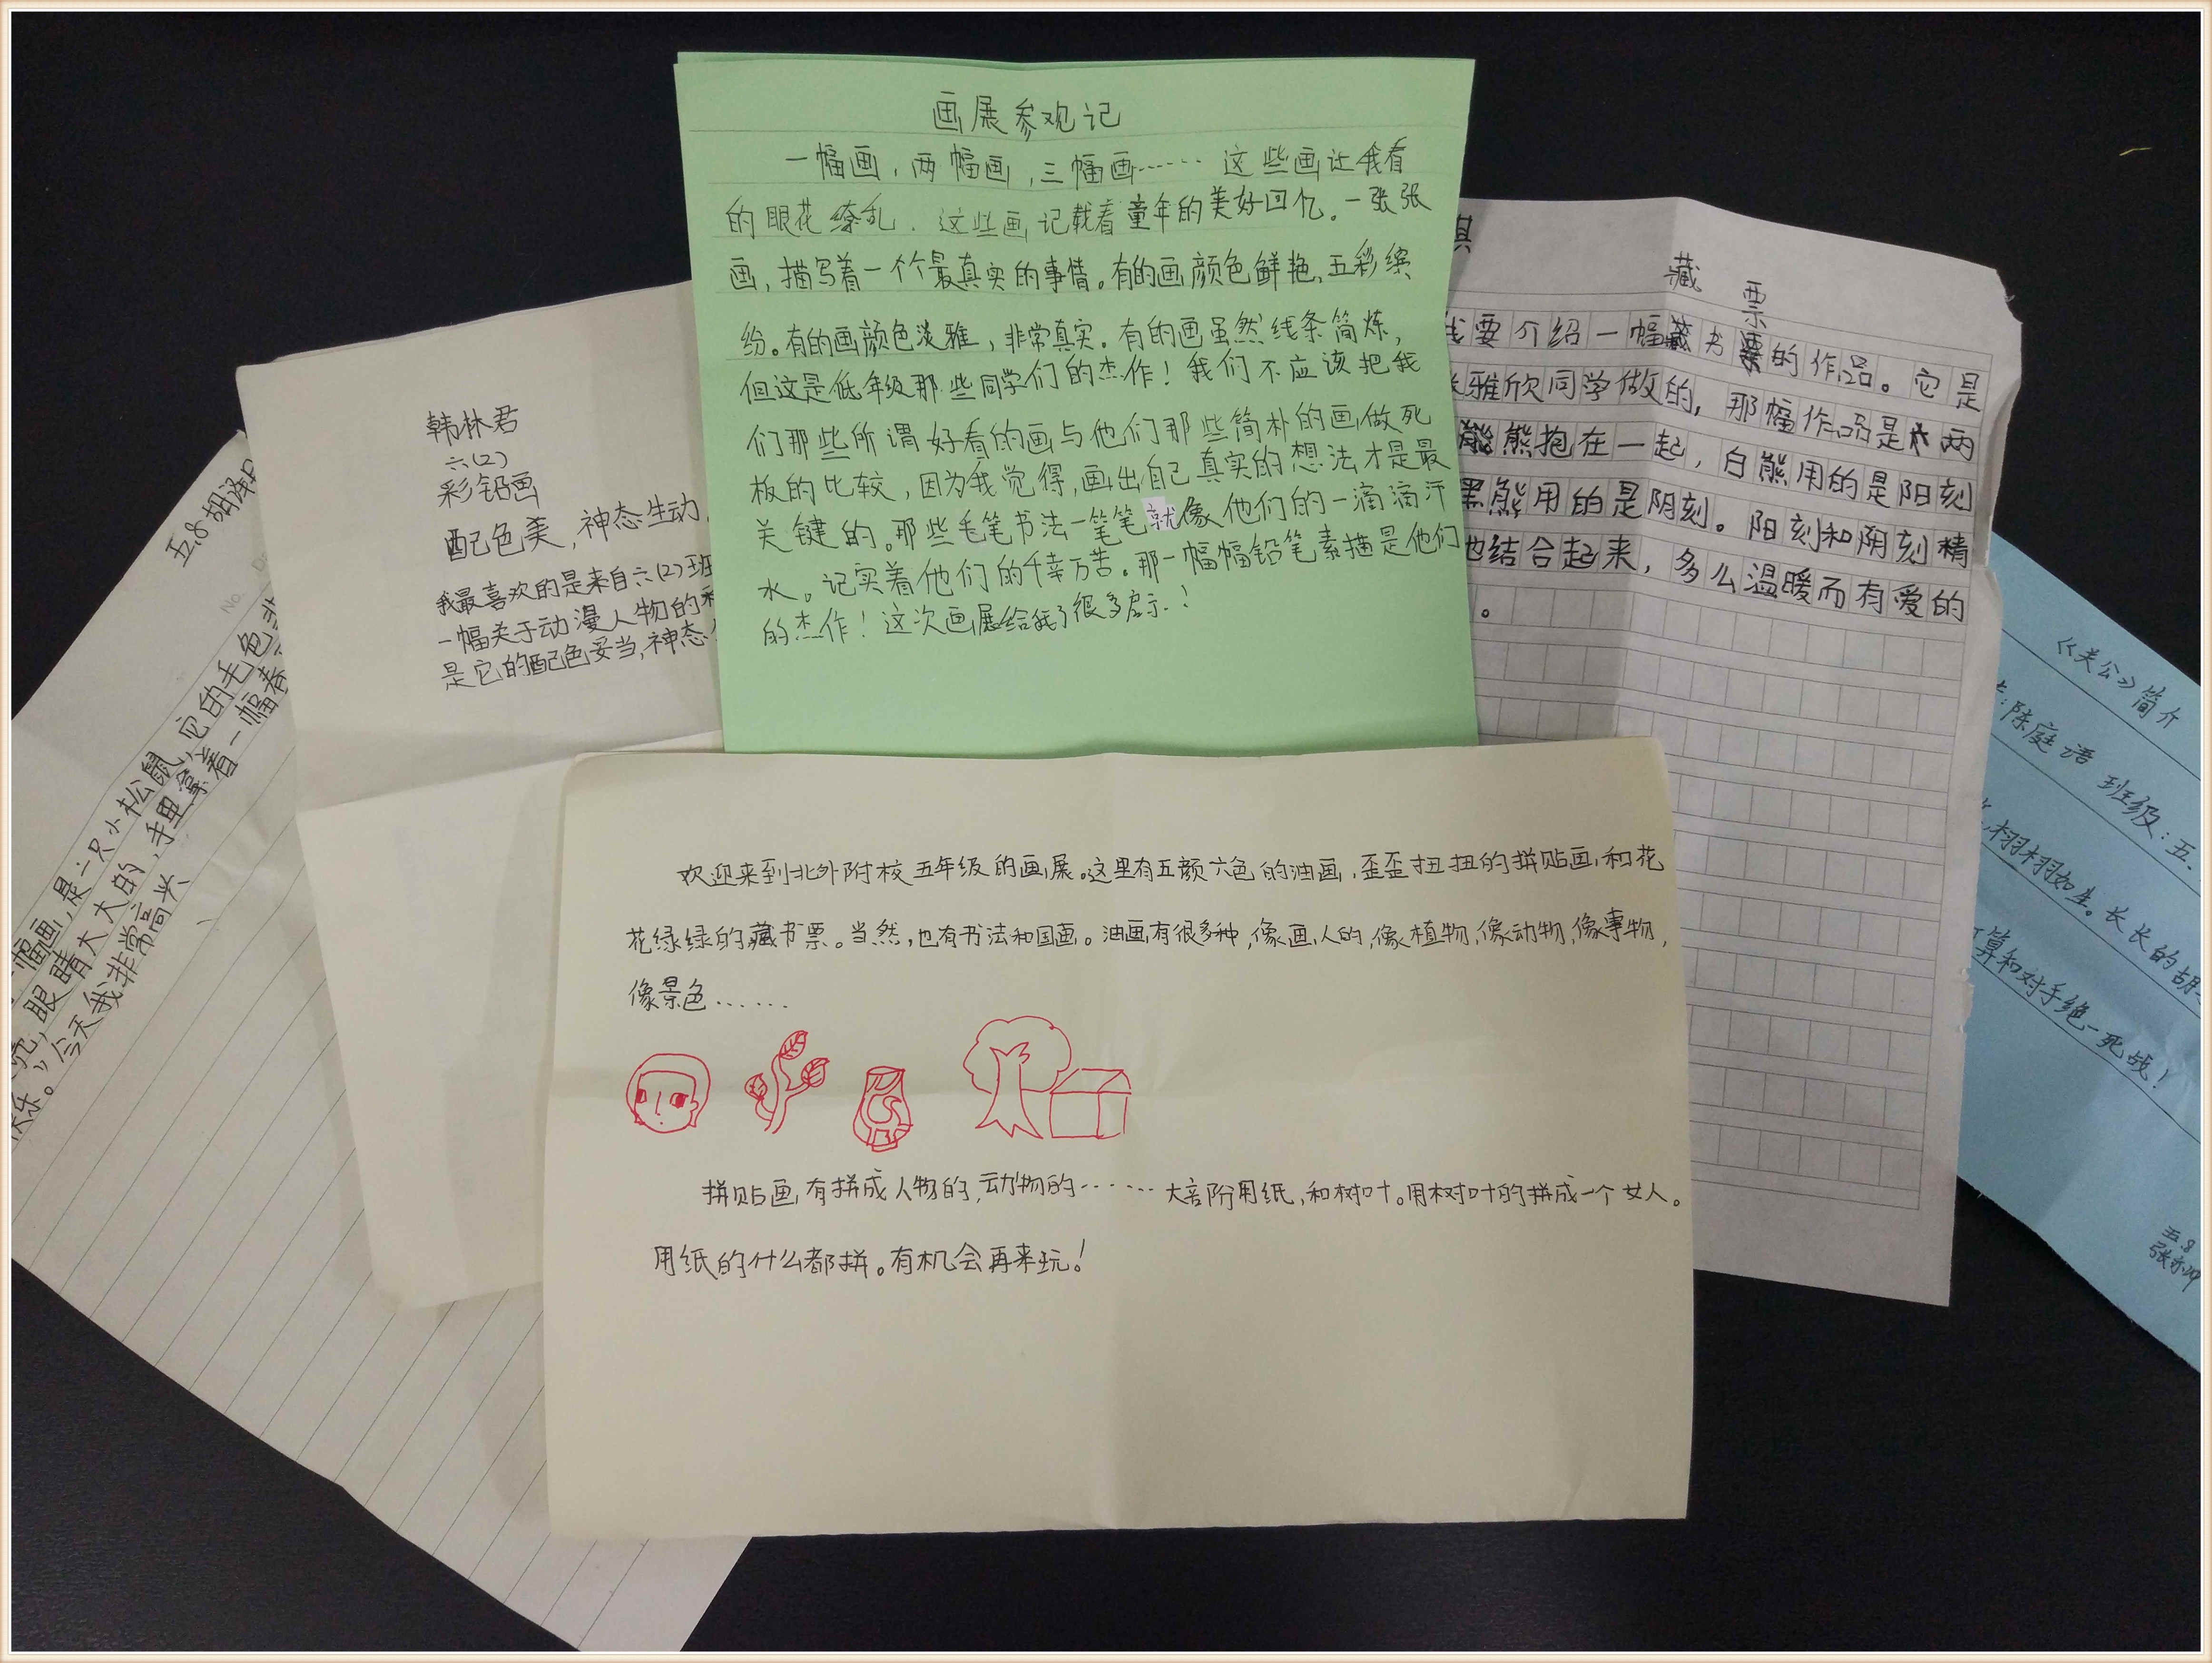 画展参观记
一幅画，两幅画，三幅画…… 这些画让我看
的眼花缭乱。这些画记载着童年的美好回忆。一张张
画，描写着一个个最真实的事情。有的画颜色鲜艳，五彩缤
纷。有的画颜色淡雅，非常真实。有的画虽然线条简炼，
但这是低年级那些同学们的杰作！我们不应该把我
们那些所谓好看的画与他们那些简朴的画做死
板的比较，因为我觉得，画出自己真实的想法才是最
关键的。那些毛笔书法一笔笔就像他们的一滴滴汗
水。记实着他们的千辛万苦。那一幅幅铅笔素描是他们
的杰作！这次画展给我了很多启示！
韩林君
六(2)
彩铅画
配色美，神态生动，
我最喜欢的是来自六(2)班
一幅关于动漫人物的
是它的配色妥当，神态
五.8 胡泽
No.
幅画，是一只小松鼠，它的毛色
眼睛大大的，手里拿着一幅春
乐。”今天我非常高兴
藏 票
我要介绍一幅藏书票的作品。它是
雅欣同学做的，那幅作品是两
熊熊抱在一起，白熊用的是阳刻
黑熊用的是阴刻。阳刻和阴刻精
也结合起来，多么温暖而有爱的
。
《关公》简介
：陈庭语 班级：五.
栩栩如生。长长的胡
算和对手绝一死战！
五.8
欢迎来到北外附校五年级的画展。这里有五颜六色的油画，歪歪扭扭的拼贴画，和花
花绿绿的藏书票。当然，也有书法和国画。油画有很多种，像画人的，像植物，像动物，像事物，
像景色……
拼贴画有拼成人物的，动物的…… 大部份用纸，和树叶。用树叶的拼成一个女人。
用纸的什么都拼。有机会再来玩！